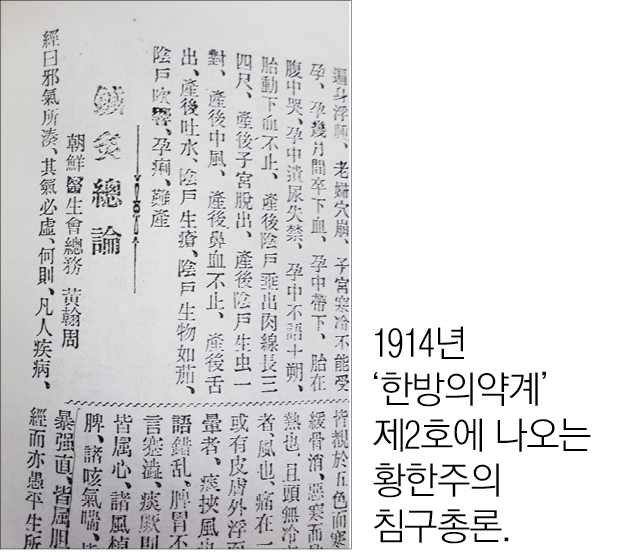 遍身浮腫、老婦穴崩、子宮寒冷不能受
孕、孕幾月間卒下血、孕中帶下、胎在
腹中哭、孕中潰尿失禁、孕中不語十朔、
胎動下血不止、產後陰戶垂出肉線長三
四尺、產後子宮脫出、產後陰戶生虫一
對、產後中風、產後鼻血不止、產後舌
出、產後吐水、陰戶生瘡、陰戶生物如茄、
陰戶吹響、孕痢、難產
鍼灸總論
朝鮮醫生會總務 黃翰周
經曰邪氣所湊、其氣必虛、何則、凡人疾病、
皆観於五色而寒
緩骨消、惡寒而
熱也、且頭無冷
者風也、痛在一
或有皮膚外浮而
暈者、痰挾風也
語錯亂、脾胃不
言蹇澁、痰厥則
皆属心、諸風掉
脾、諸咳氣喘、皆
暴强直、皆属胆
經而亦愚平生所
1914년
‘한방의약계’
제2호에 나오는
황한주의
침구총론.